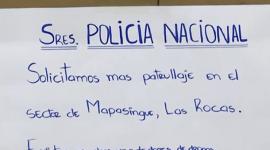 SRES. POLICIA NACIONAL
Solicitamos mas patrullaje en el
sector de Mapasingue, Las Rocas.